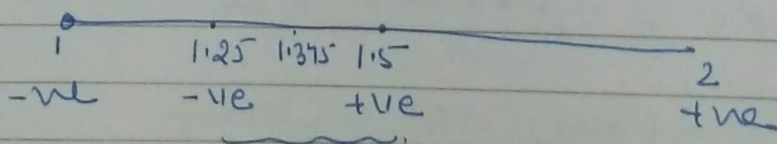 1 1.25 1.375 1.5 2
-ve -ve +ve +ve